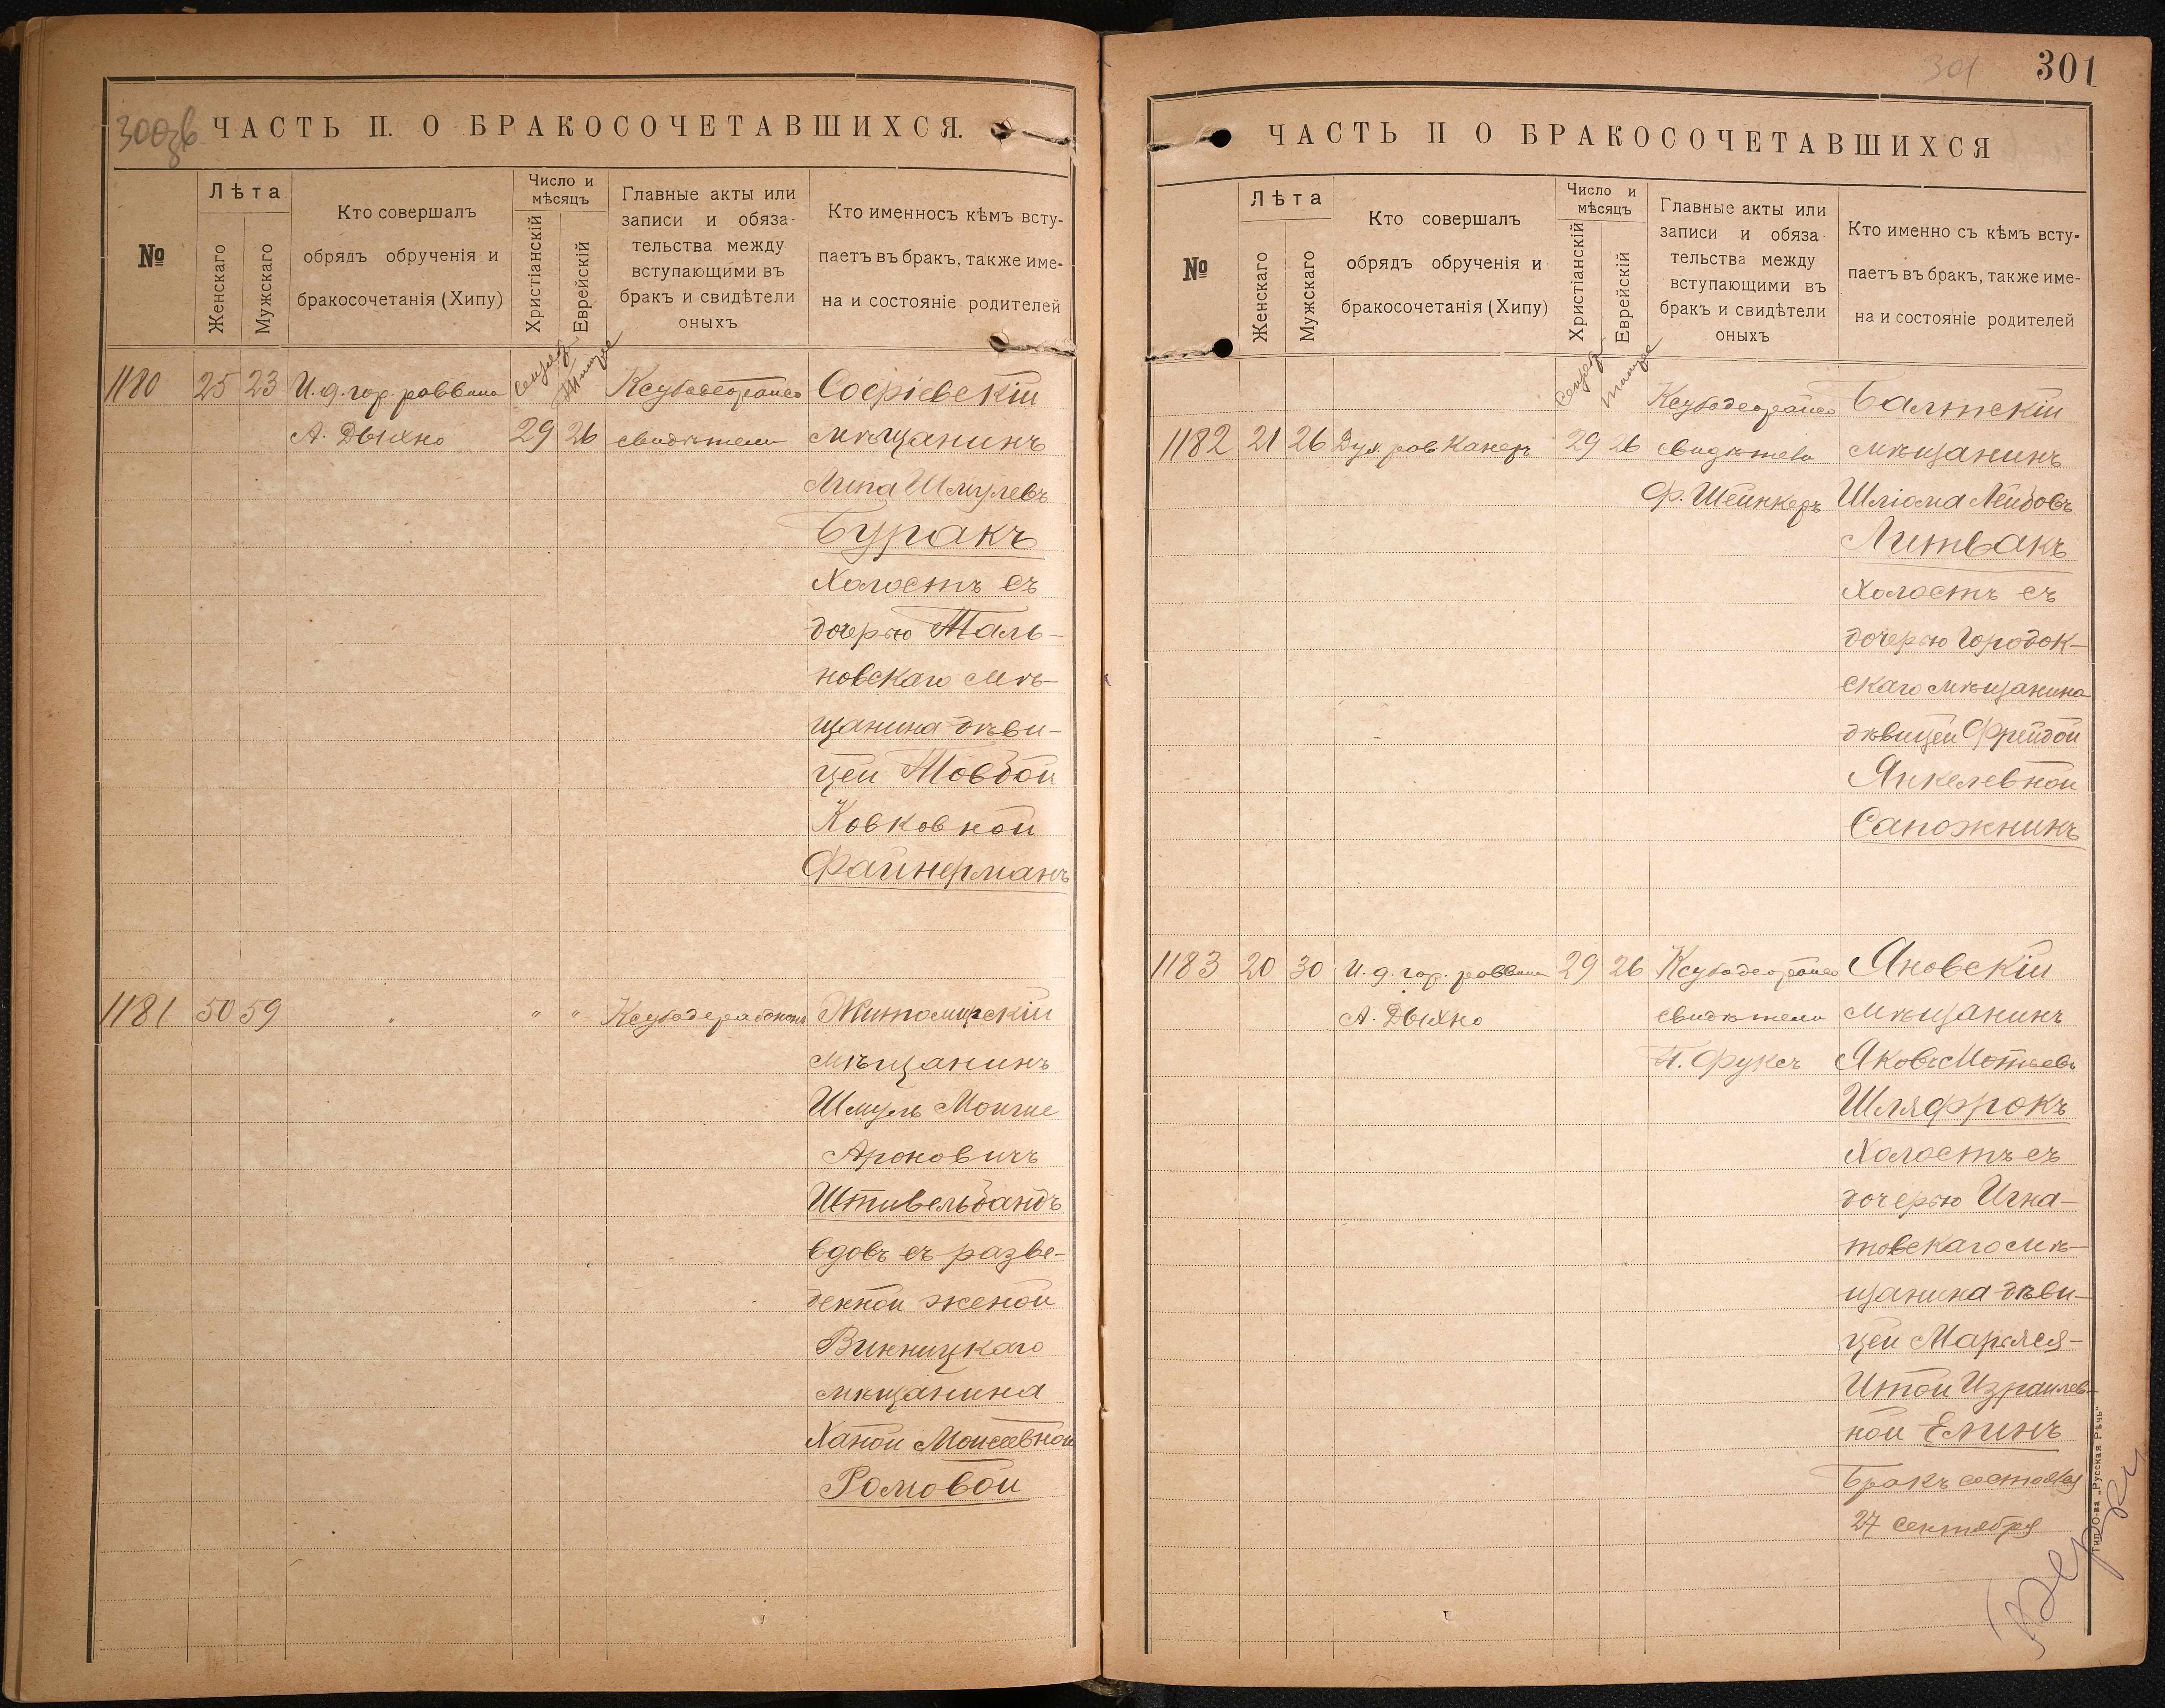 300зв
ЧАСТЬ II. О БРАКОСОЧЕТАВШИХСЯ.
№
Лѣта
Женскаго
Мужскаго
Кто совершалъ
обрядъ обрученія и
бракосочетанія (Хипу)
Число и
мѣсяцъ
Христіанскій
Еврейскій
Главные акты или
записи и обяза-
тельства между
вступающими въ
бракъ и свидѣтели
оныхъ
Кто именносъ кѣмъ всту-
паетъ въ бракъ, также име-
на и состояніе родителей
1180 25 23 И. д. гор. раввина Сентябр. Тишре Софіевскій
А. Дыхно 29 26 свидѣтели мѣщанинъ
Липа Шмулевъ
Буракъ
Холостъ съ
дочерью Таль-
новскаго мѣ-
щанина дѣви-
цей Товбой
Ковковной
Файнерманъ
1181 50 59 " " Житомирскій
мѣщанинъ
Шмуль Моише
Ароновичъ
Штивельбандъ
вдовъ съ разве-
денной женой
Винницкаго
мѣщанина
Ханой Моисеевной
Ромовой
301
301
ЧАСТЬ II О БРАКОСОЧЕТАВШИХСЯ
№
Лѣта
Женскаго
Мужскаго
Кто совершалъ
обрядъ обрученія и
бракосочетанія (Хипу)
Число и
мѣсяцъ
Христіанскій
Еврейскій
Главные акты или
записи и обяза
тельства между
вступающими въ
бракъ и свидѣтели
оныхъ
Кто именно съ кѣмъ всту-
паетъ въ бракъ, также име-
на и состояніе родителей
Сентябр. Тишре Балтскій
1182 21 26 Дух. рав Канеръ 29 26 свидѣтели мѣщанинъ
Ф. Шейнкеръ Шліома Лейбовъ
Литвакъ
Холостъ съ
дочерью Городок-
скаго мѣщанина
дѣвицей Фрейдой
Янкелевной
Сапожникъ
1183 20 30 И. д. гор. раввина 29 26 Яновскій
А. Дыхно свидѣтели мѣщанинъ
П. Фуксъ Яковъ Мотьевъ
Шляфрокъ
Холостъ съ
дочерью Игна-
товскаго мѣ-
щанина дѣви-
цей Марьяся-
Итой Израилев-
ной Елинъ
Бракъ состоялся
27 сентября
Тип. О-ва „Русская Рѣчь"